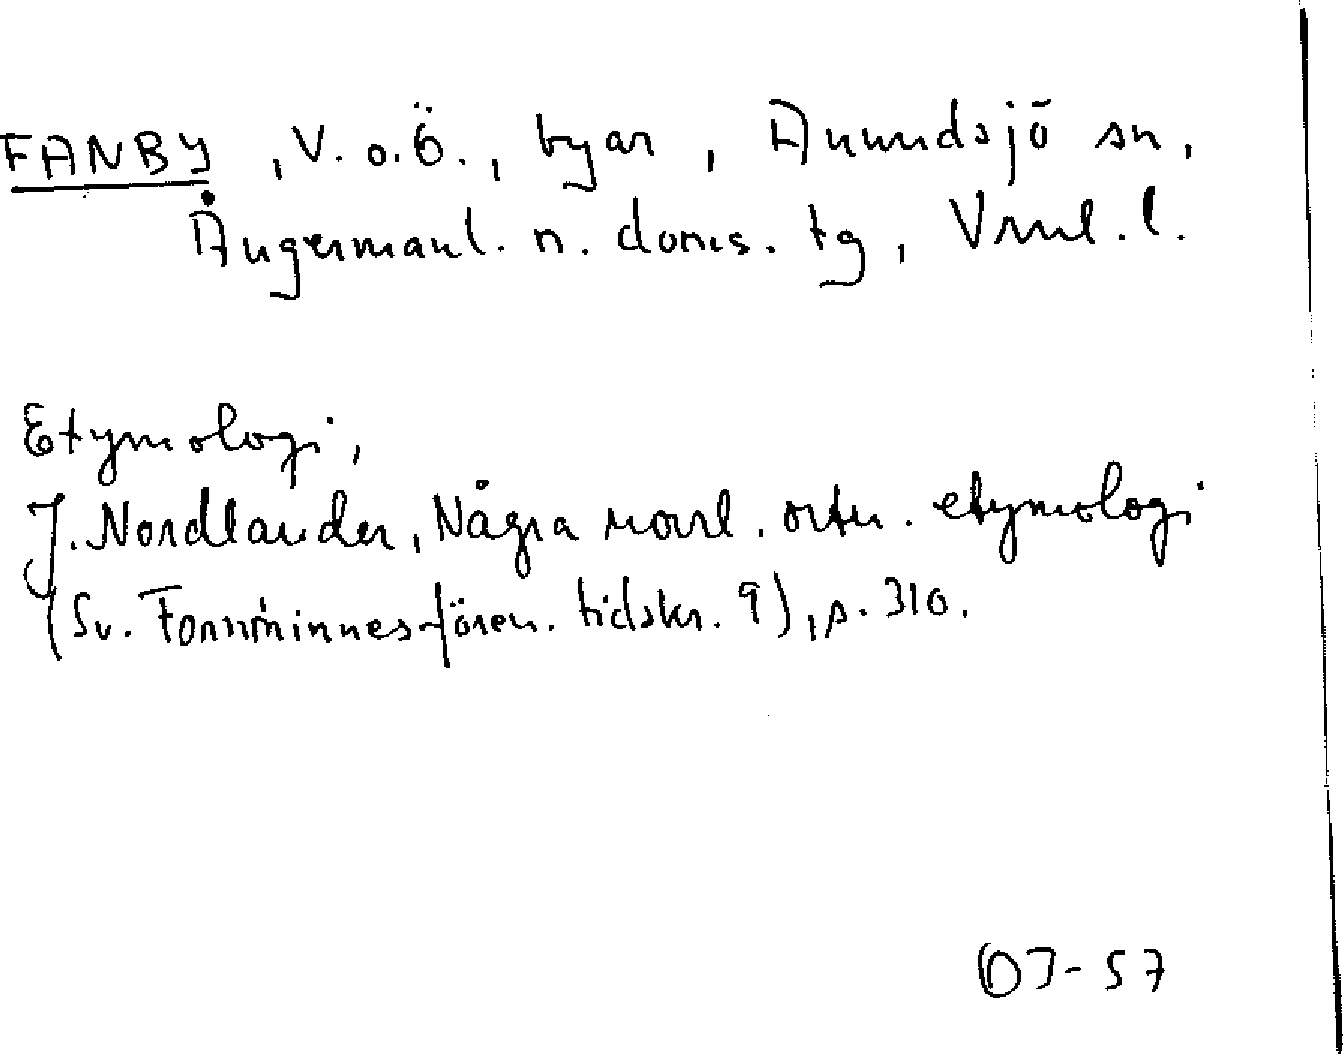 FANBY, V. o. Ö., byar, Anundsjö sn,
Ångermanl. n. doms. tg, Vrnl. l.
Etymologi,
J. Nordlander, Några norrl. ortn. etymologi
(Sv. Fornminnesfören. tidskr. 9), s. 310.
OJ-57